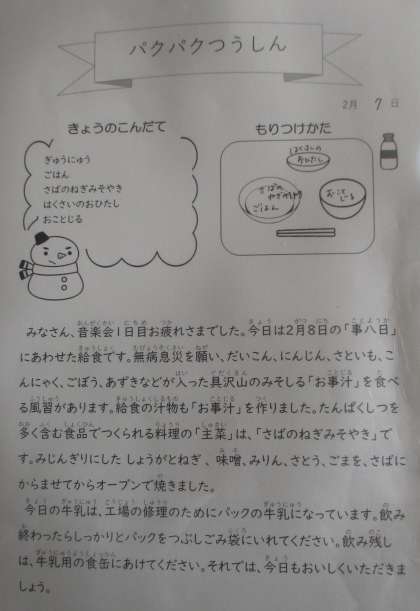 パクパクつうしん
2月 7 日
きょうのこんだて
ぎゅうにゅう
ごはん
さばのねぎみそやき
はくさいのおひたし
おことじる
もりつけかた
はくさいの
おひたし
さばの
ねぎみそやき
ごはん
おこと
じる
みなさん、音楽会1日目お疲れさまでした。今日は2月8日の「事八日」
にあわせた給食です。無病息災を願い、だいこん、にんじん、さといも、こ
んにゃく、ごぼう、あずきなどが入った具沢山のみそしる「お事汁」を食べ
る風習があります。給食の汁物も「お事汁」をつくりました。たんぱくしつを
多く含む食品でつくられる料理の「主菜」は、「さばのねぎみそやき」で
す。みじんぎりにした しょうがとねぎ、味噌、みりん、さとう、ごまを、さばに
からませてからオーブンで焼きました。
今日の牛乳は、工場の修理のためにパックの牛乳になっています。飲み
終わったらしっかりとパックをつぶしごみ袋にいれてください。飲み残し
は、牛乳用の食缶にあけてください。それでは、今日もおいしくいただきま
しょう。